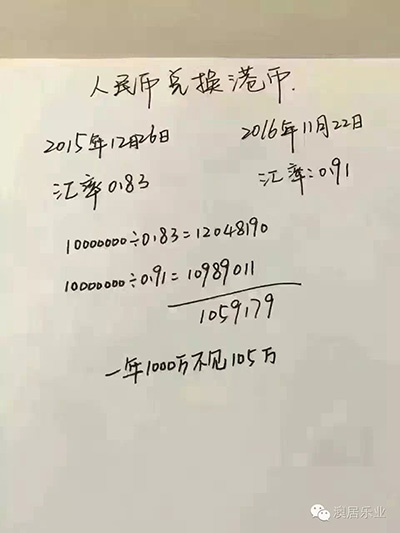 人民币兑换港币.
2015年12月26日
2016年11月22日
汇率0.83
汇率:0.91
10000000÷0.83=12048190
10000000÷0.91=10989011
1059179
一年1000万不见105万
澳居乐业